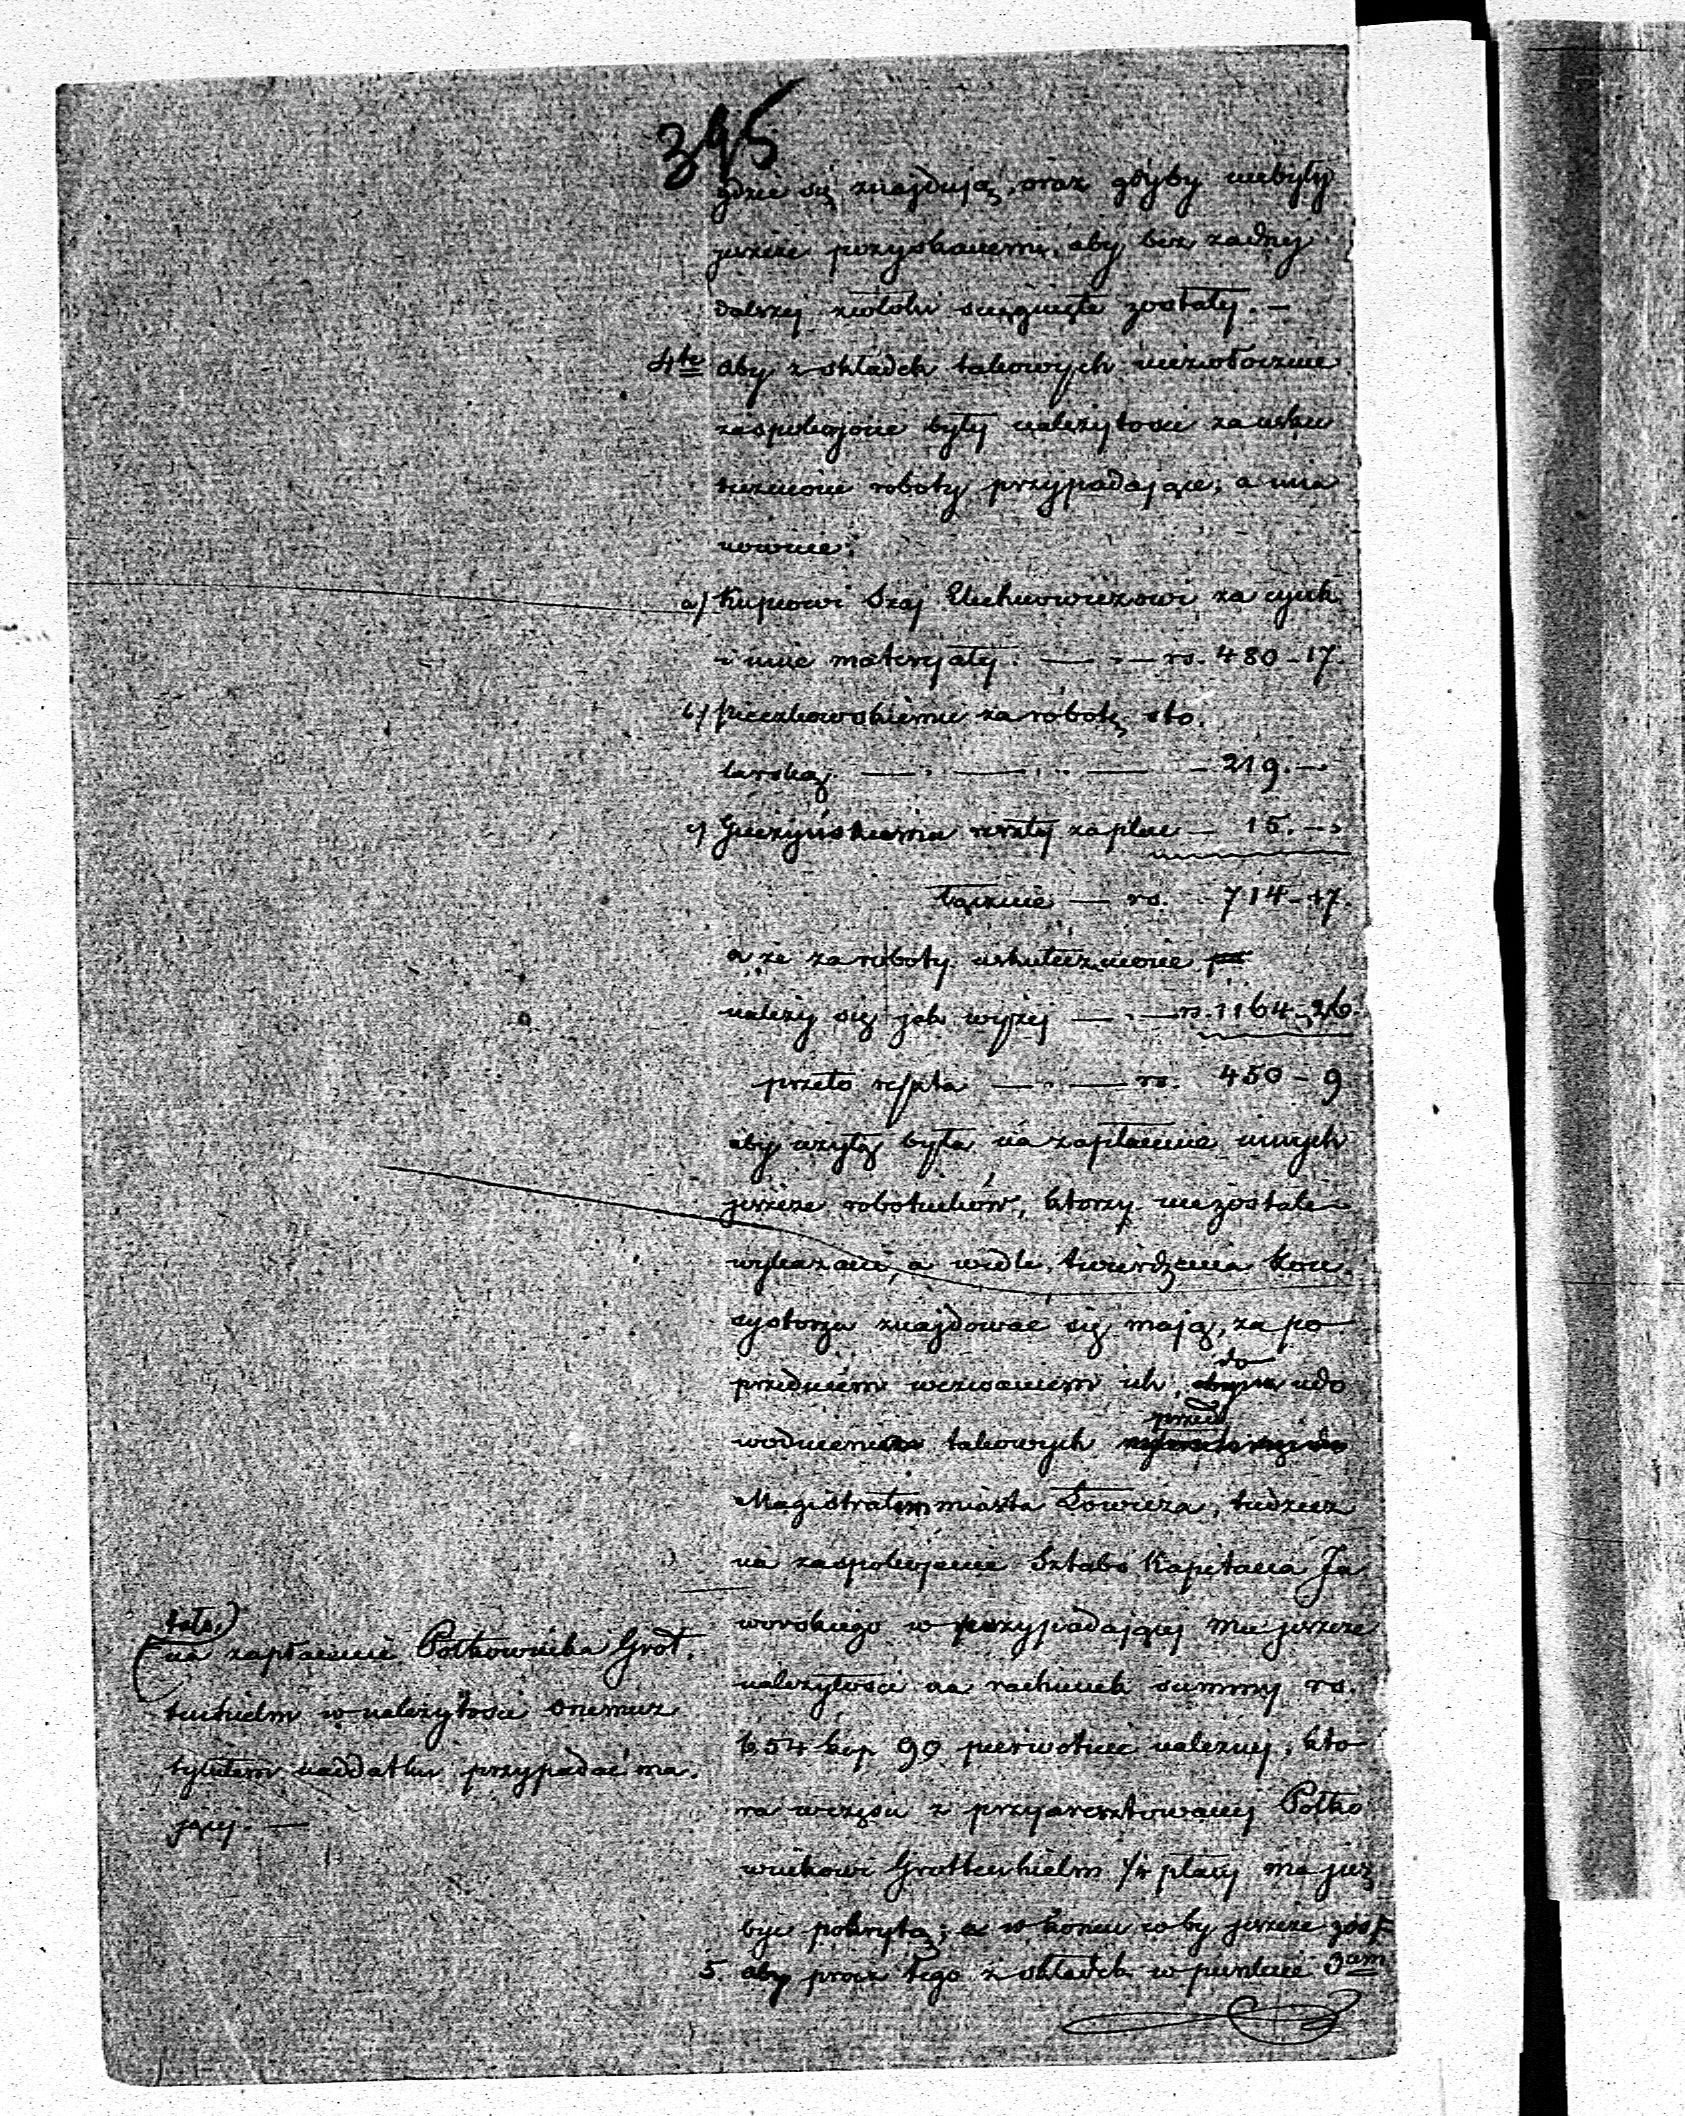 395
gdzie się znajdują, oraz gdyby niebyły
jeszcze pozyskanemi, aby bez żadnej
dalszej zwłoki ściągnięte zostały. —
4te aby z składek takowych niezwłocznie
zaspokojone były należytości za usku
tecznione roboty przypadające, a mia
nowicie:
a) Kupcowi Szaj za cynk
i inne materyały. — " — rs. 480 - 17.
b) Pieczkowskiemu za robotę sto.
larską — " — " — 219. —
c) reszty za plac — 15. —
łącznie — rs. 714 - 17.
a że za roboty uskutecznione
należy się jak wyżej — " — rs. 1164 - 26.
przeto reszta — " — rs. 450 - 9
aby użytą była na zapłacenie innych
jeszcze robotników, którzy niezostali
wykazani, a wedle twierdzenia Kon.
systorza znajdować się mają, za po
do
przedniem wezwaniem ich udo
przed
wodnienia takowych
Magistratem miasta Łowicza, tudzież
na zaspokojenie Sztabs Kapitana Ja
worskiego w przypadającej mu jeszcze
należytości na rachunek summy rs.
654 kop 90 pierwotnie należnej, któ
ra w części z przyaresztowanej Półko
wnikowi Grottenhielm 1/4 płacy ma już
być pokrytą; a w końcu coby jeszcze
5. aby procz tego z składek w punkcie 3am
na zapłacenie Półkownika Grot.
tenhielm w należytości onemuż
tytułem naddatku przypadać ma.
jącej. —